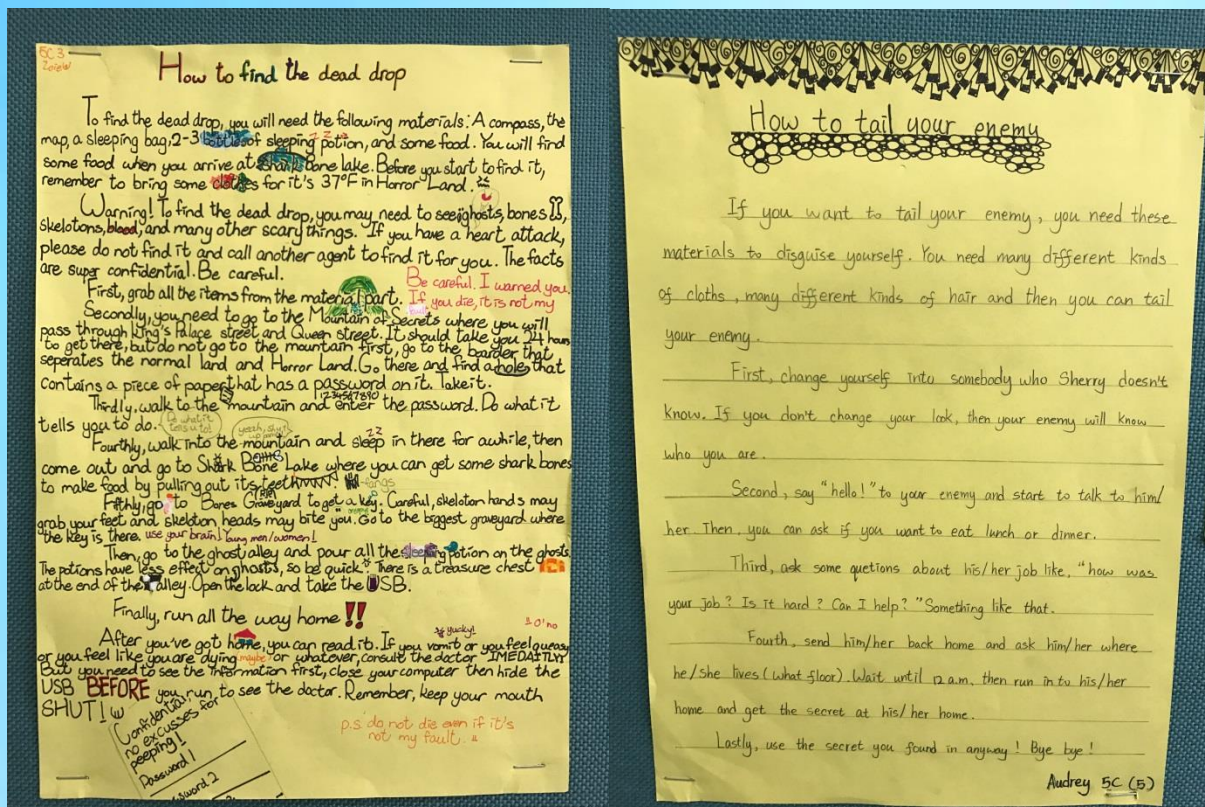 5C 3
ZoieW
How to find the dead drop
To find the dead drop, you will need the following materials: A compass, the
map, a sleeping bag, 2-3 bottles of sleeping potion, and some food. You will find
some food when you arrive at shark bone lake. Before you start to find it,
remember to bring some clothes for it's 37°F in Horror Land.
Warning! To find the dead drop, you may need to see ghosts, bones,
skeletons, blood, and many other scary things. If you have a heart attack,
please do not find it and call another agent to find it for you. The facts
are super confidential. Be careful.
Be careful. I warned you.
First, grab all the items from the material part.
If you die, it is not my
fault.
Secondly, you need to go to the Mountain of Secrets where you will
pass through King's Palace street and Queen street. It should take you 24 hours
to get there, but do not go to the mountain first, go to the boarder that
seperates the normal land and Horror Land. Go there and find a hole that
contains a piece of paper that has a password on it. Take it.
1234567890
Thirdly, walk to the mountain and enter the password. Do what it
tells you to do.
Do what it
tells u to!
Fourthly, walk into the mountain and sleep in there for awhile, then
come out and go to Shark Bone Lake where you can get some shark bones
to make food by pulling out its teeth
fangs
Fifthly, go to Bones Graveyard to get a key. Careful, skeleton hands may
grab your feet and skeleton heads may bite you. Go to the biggest graveyard where
the key is there. use your brain! Young men/women!
Then, go to the ghost alley and pour all the sleeping potion on the ghosts.
The potions have less effect on ghosts, so be quick. There is a treasure chest
at the end of the alley. Open the lock and take the USB.
Finally, run all the way home!!
yucky!
After you've got home, you can read it. If you vomit or you feel queasy
or you feel like you are dying maybe or whatever, consult the doctor IMEDAITLY
But you need to see the information first, close your computer then hide the
USB BEFORE you run to see the doctor. Remember, keep your mouth
SHUT!
Confidential,
no excusses for
peeping!
Password 1
p.s do not die even if it's
not my fault.
How to tail your enemy
If you want to tail your enemy, you need these
materials to disguise yourself. You need many different kinds
of cloths, many different kinds of hair and then you can tail
your enemy.
First, change yourself into somebody who Sherry doesn't
know. If you don't change your look, then your enemy will know
who you are.
Second, say "hello!" to your enemy and start to talk to him/
her. Then, you can ask if you want to eat lunch or dinner.
Third, ask some quetions about his/her job like, "how was
your job? Is it hard? Can I help?" Something like that.
Fourth, send him/her back home and ask him/her where
he/she lives (what floor). Wait until 12 a.m. then run in to his/her
home and get the secret at his/her home.
Lastly, use the secret you found in anyway! Bye bye!
Audrey 5C (5)